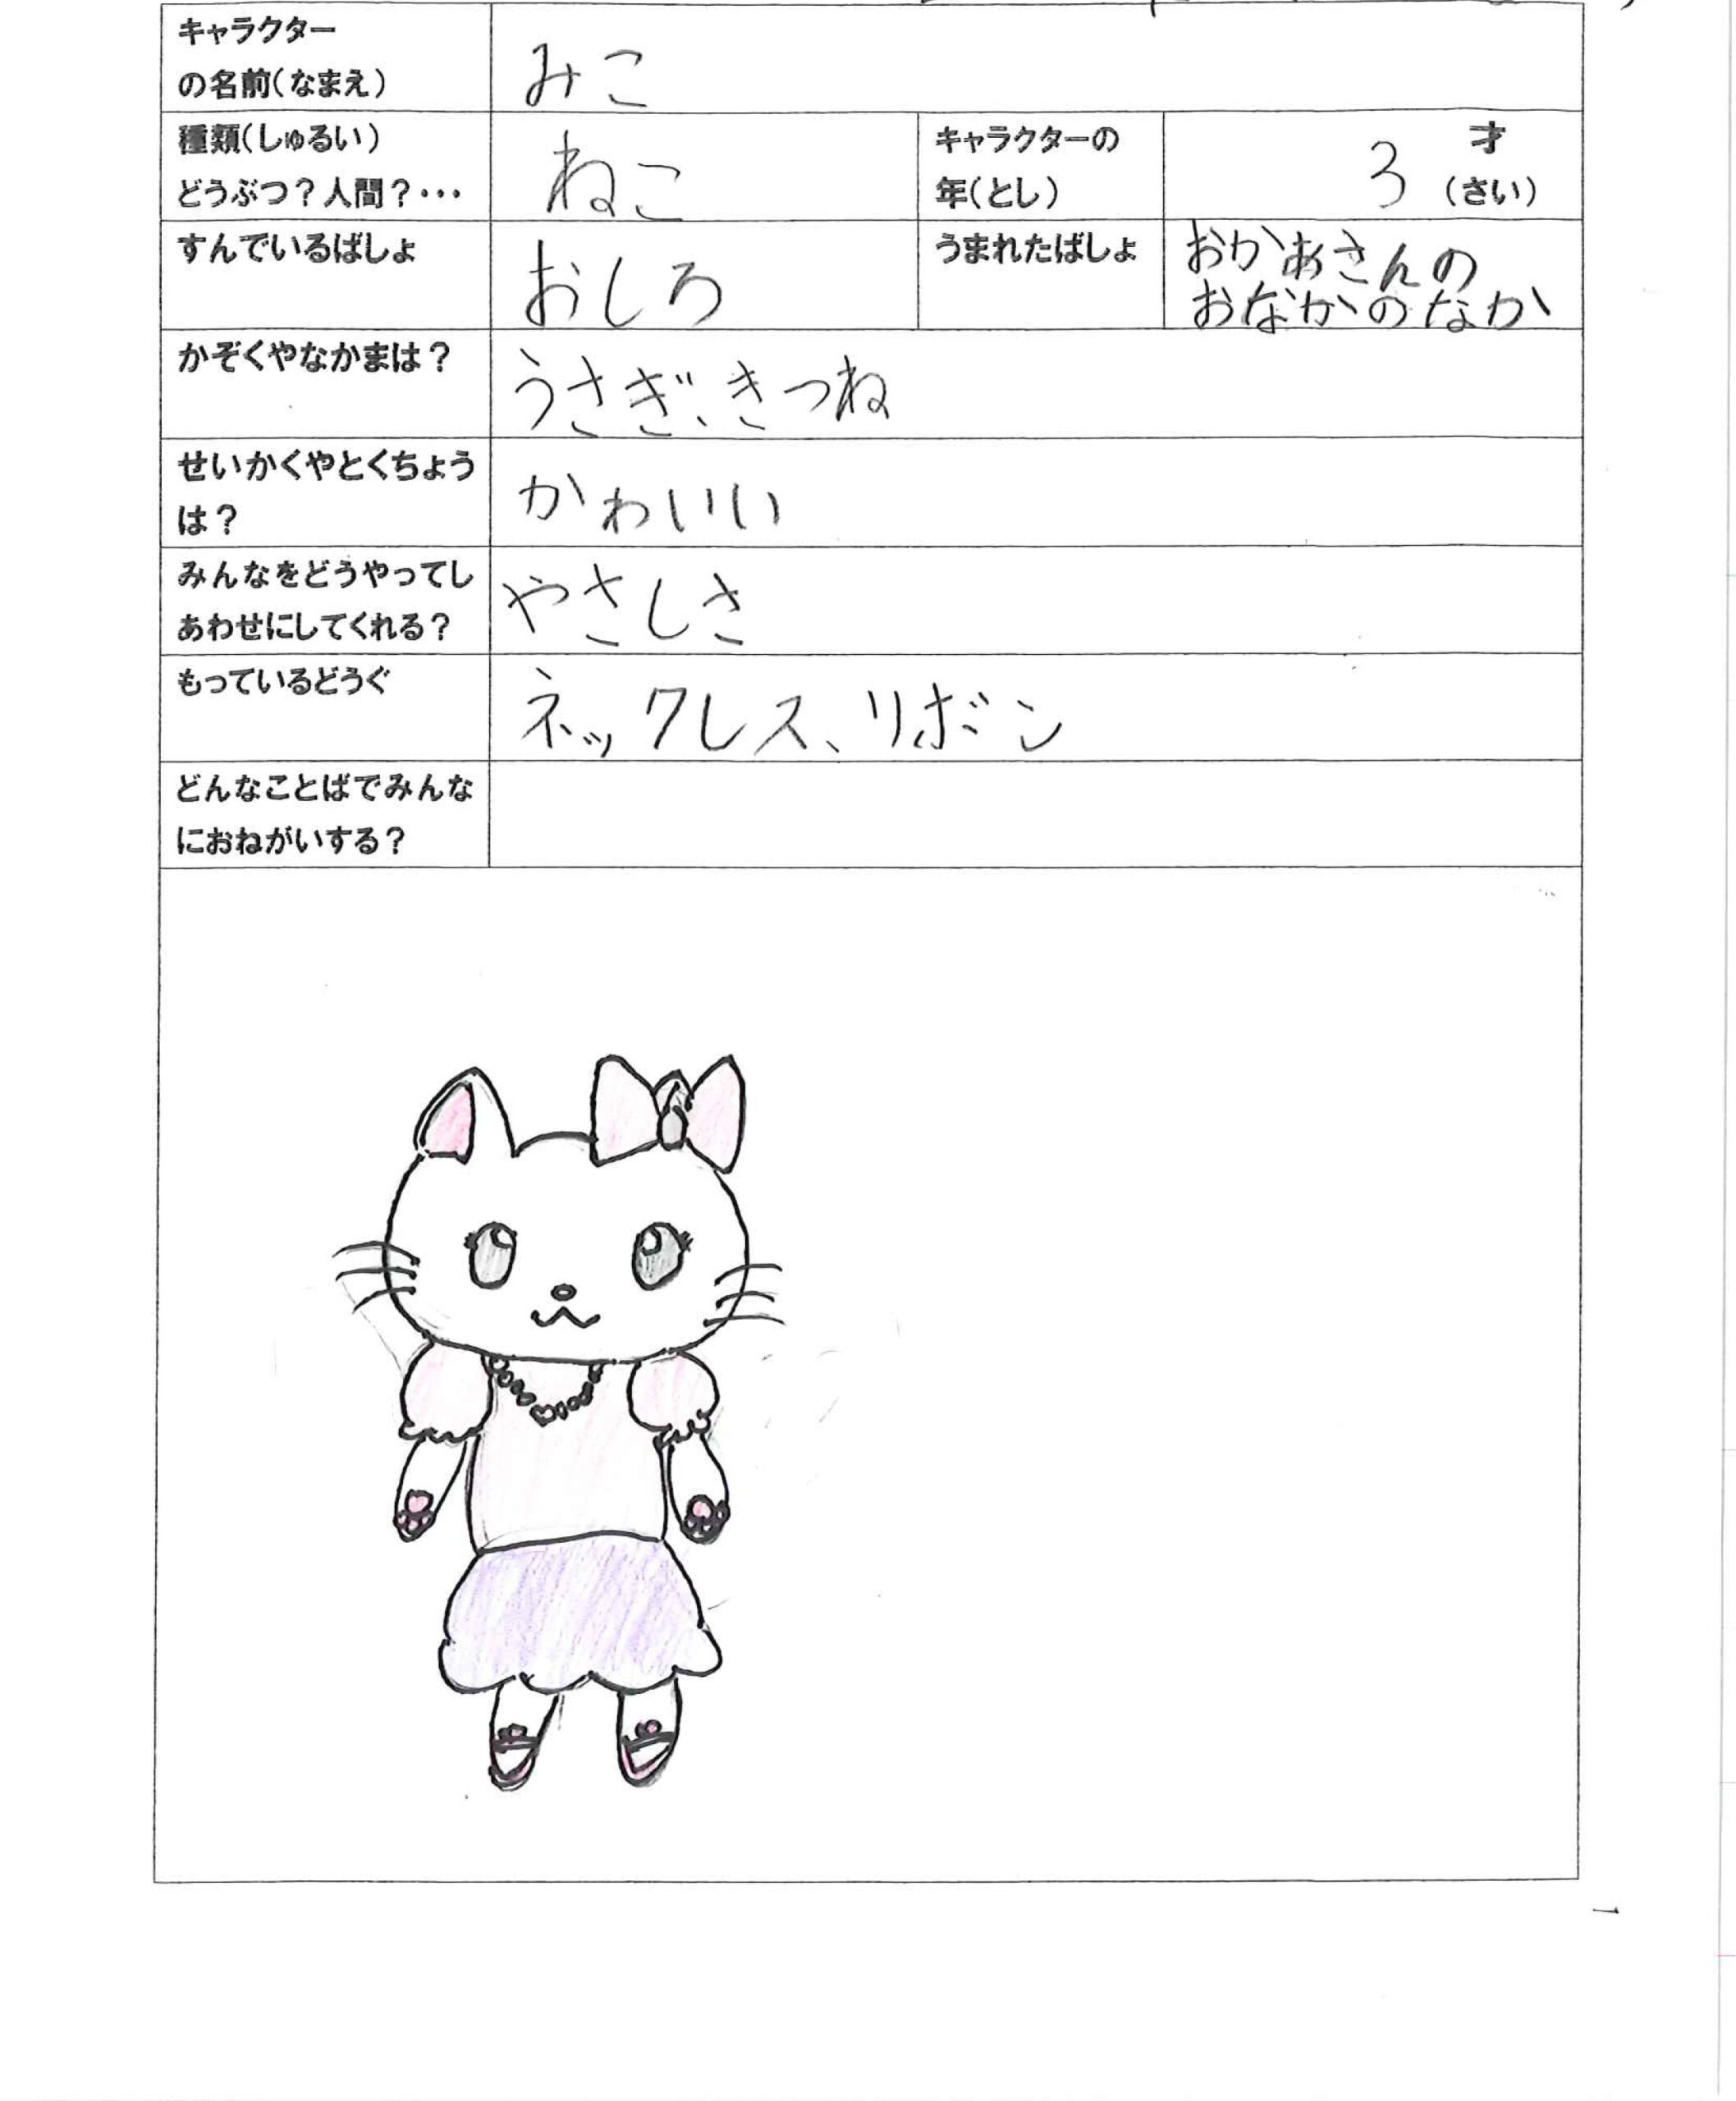 キャラクター
の名前(なまえ)
みこ
種類(しゅるい)
どうぶつ?人間?・・・
ねこ
キャラクターの
年(とし)
3
才
(さい)
すんでいるばしょ
おしろ
うまれたばしょ
おかあさんの
おなかのなか
かぞくやなかまは?
うさぎ、きつね
せいかくやとくちょう
は?
かわいい
みんなをどうやってし
あわせにしてくれる?
やさしさ
もっているどうぐ
ネックレス、リボン
どんなことばでみんな
におねがいする?
1